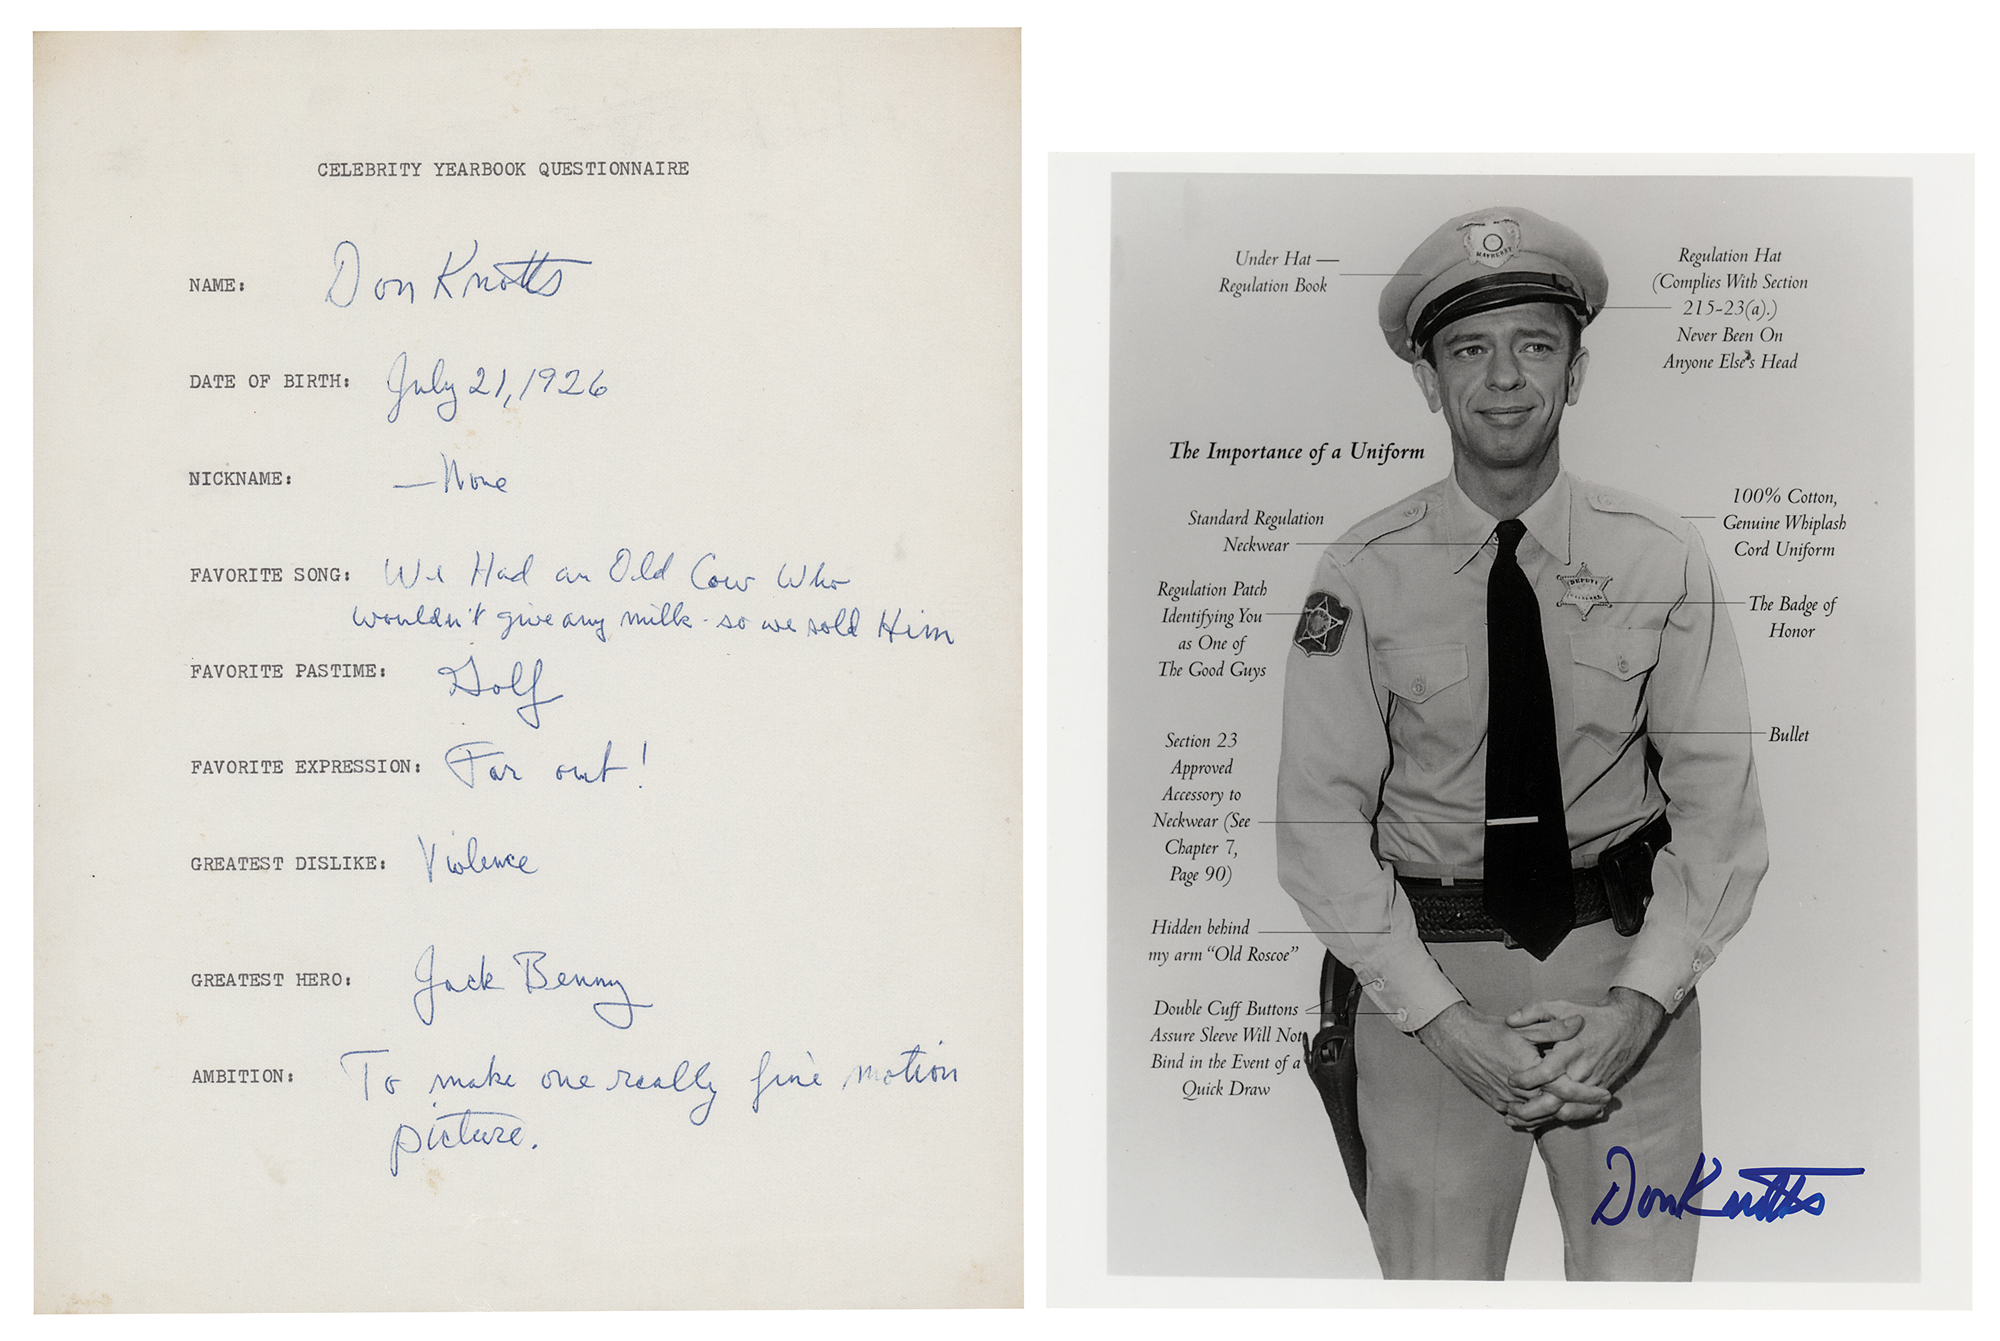 CELEBRITY YEARBOOK QUESTIONNAIRE
NAME: Don Knotts
DATE OF BIRTH: July 21, 1926
NICKNAME: — None
FAVORITE SONG: We Had an Old Cow Who
wouldn't give any milk - so we sold Him
FAVORITE PASTIME: Golf
FAVORITE EXPRESSION: Far out!
GREATEST DISLIKE: Violence
GREATEST HERO: Jack Benny
AMBITION: To make one really fine motion
picture.
Under Hat —
Regulation Book
Regulation Hat
(Complies With Section
215-23(a).)
Never Been On
Anyone Else's Head
MAYBERRY
The Importance of a Uniform
Standard Regulation
Neckwear
100% Cotton,
Genuine Whiplash
Cord Uniform
Regulation Patch
Identifying You
as One of
The Good Guys
DEPUTY
The Badge of
Honor
Section 23
Approved
Accessory to
Neckwear (See
Chapter 7,
Page 90)
Bullet
Hidden behind
my arm “Old Roscoe”
Double Cuff Buttons
Assure Sleeve Will Not
Bind in the Event of a
Quick Draw
Don Knotts